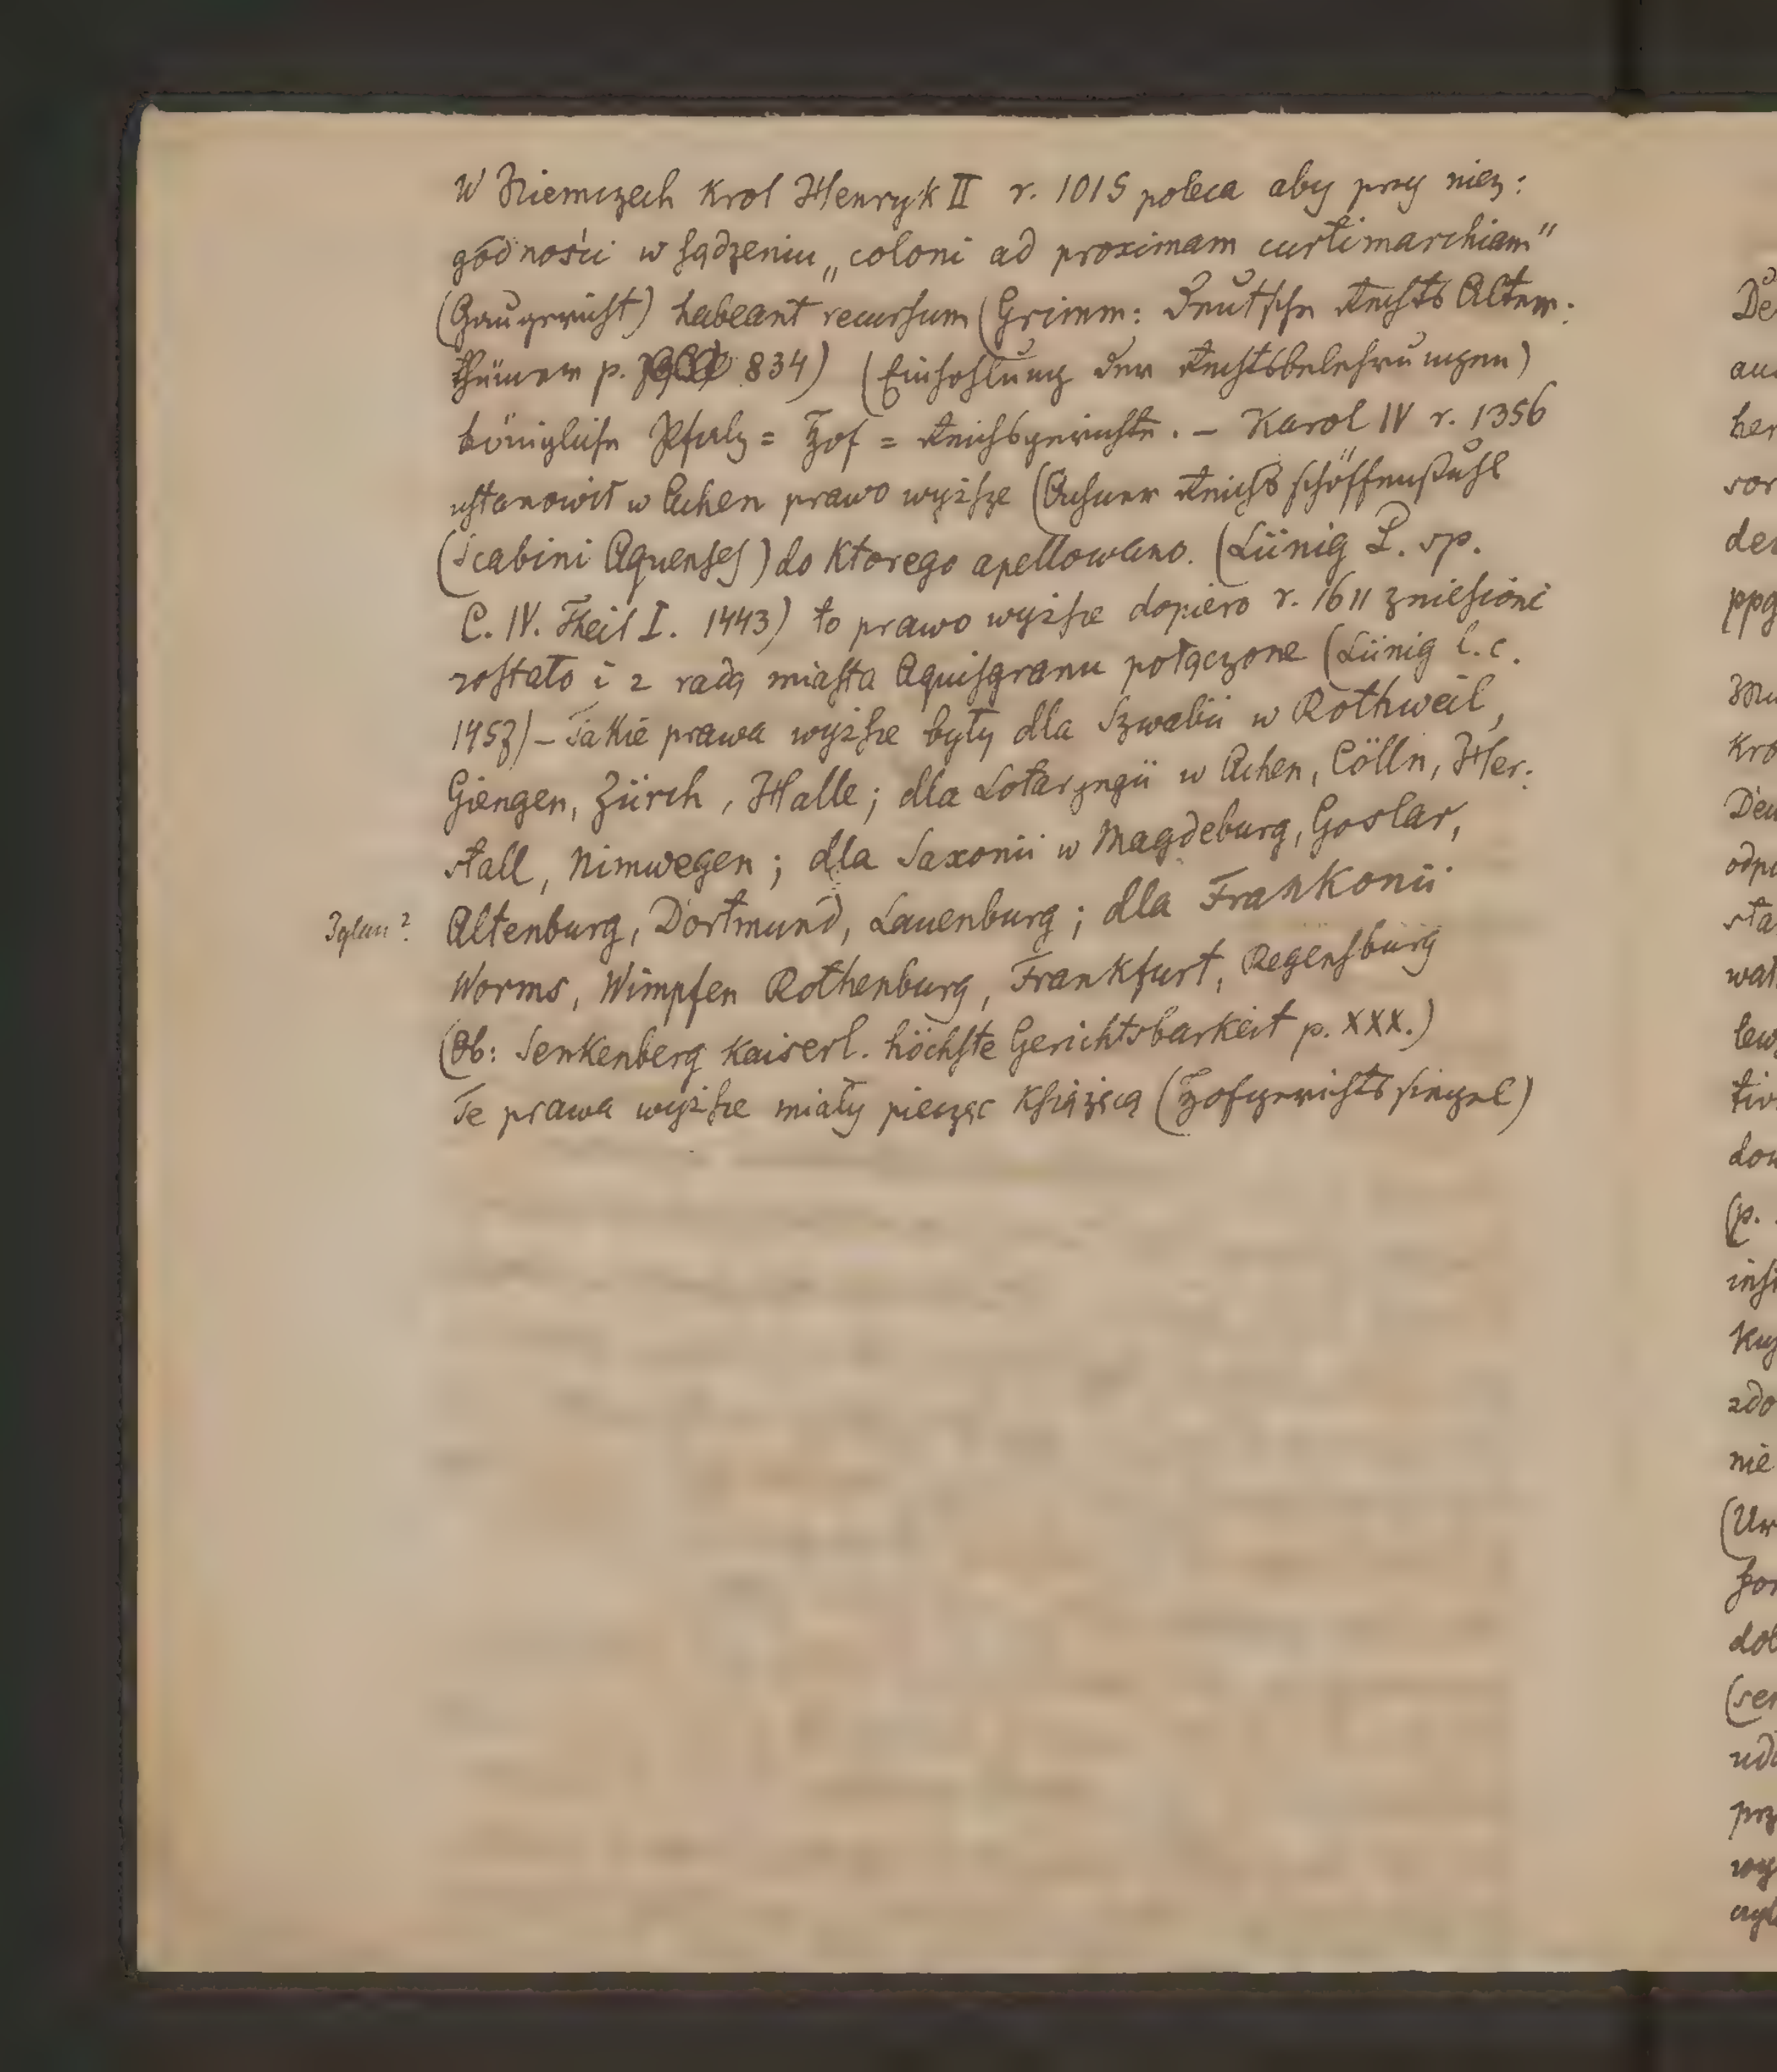 W Niemczech Krol Henryk II r. 1015 poleca aby przy niez:
godności w sądzeniu „coloni ad proximam curtimarchiam"
(Gaugericht) habeant recursum (Grimm: deutsche Rechts Alter:
thümer p. 834) (Einhohlung der Rechtsbelehrungen)
königliche Pfalz = Hof = Reichsgerichte. – Karol IV r. 1356
ustanowił w Achen prawo wyższe (Achner Reichsschöffenstuhl
(Scabini Aquenses) do Ktorego apellowano. (Lünig P. sp.
C. IV. Theil I. 1443) to prawo wyższe dopiero r. 1611 zniesione
zostało i z radą miasta Aquisgranu połączone (Lünig l. c.
1453) – Takie prawa wyższe były dla Szwabii w Rothweil,
Giengen, Zürch, Halle; dla Lotaryngii w Achen, Cölln, Her:
stall, Nimwegen; dla Saxonii w Magdeburg, Goslar,
Iglau? Altenburg, Dortmund, Lauenburg; dla Frankonii
Worms, Wimpfen Rothenburg, Frankfurt, Regensburg
(Ob: Senkenberg Kaiserl. höchste Gerichtsbarkeit p. XXX.)
Te prawa wyższe miały pieczęc Książęcą (Hofgerichtssiegel)